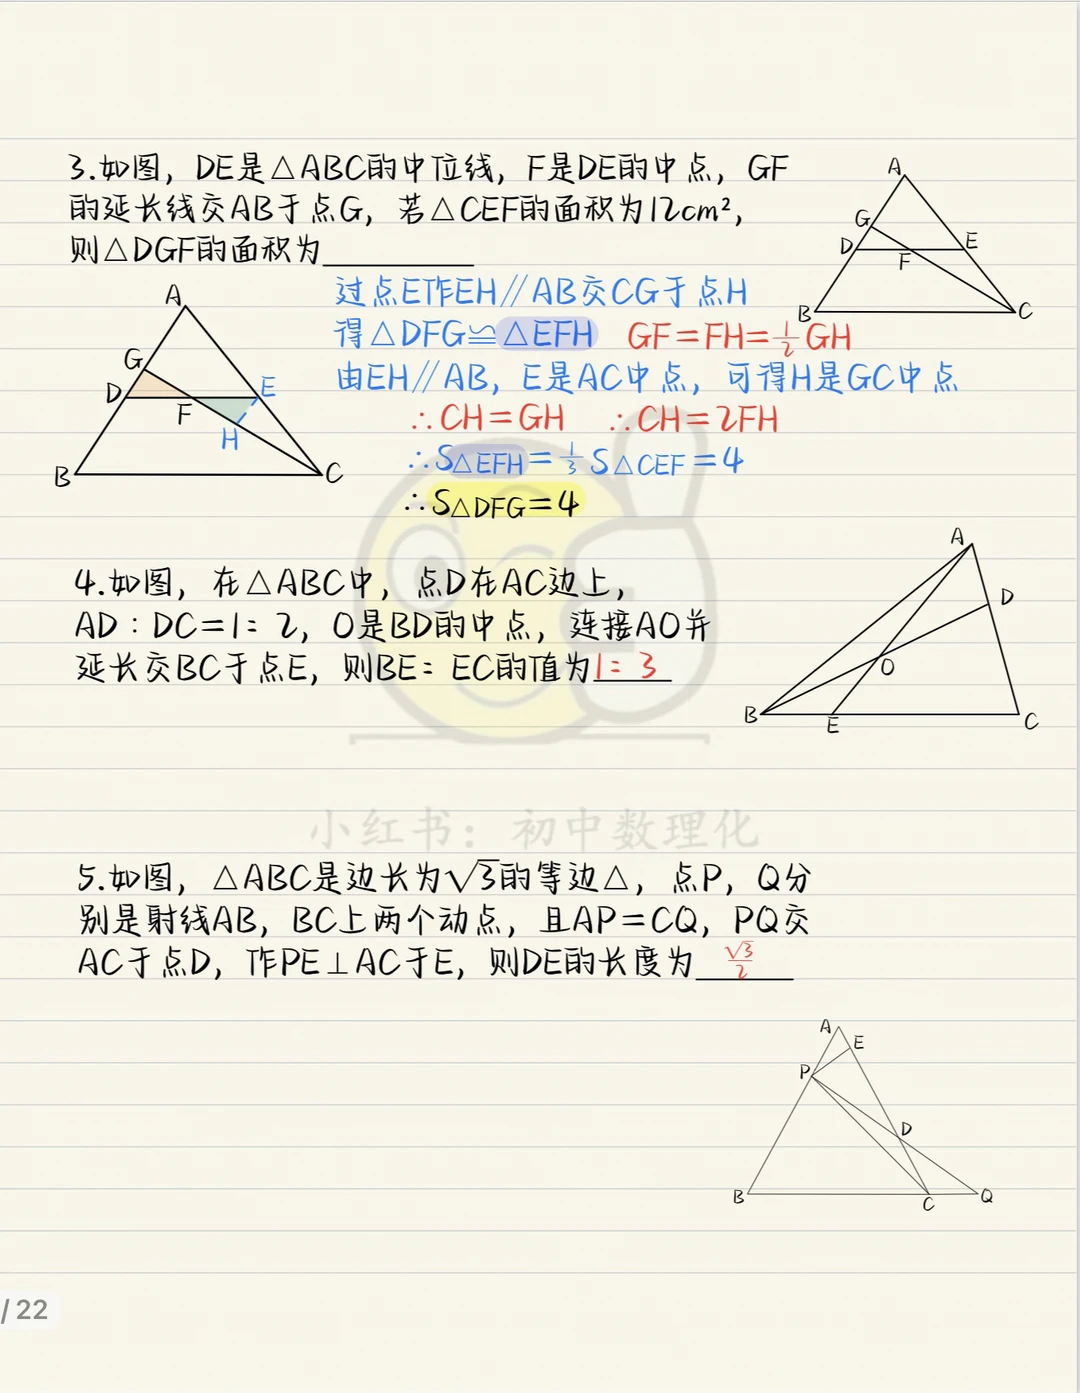 3.如图，DE是△ABC的中位线，F是DE的中点，GF
的延长线交AB于点G，若△CEF的面积为12cm²，
则△DGF的面积为
A
G
D
E
F
B
C
过点E作EH∥AB交CG于点H
得△DFG≌△EFH GF=FH=½GH
由EH∥AB，E是AC中点，可得H是GC中点
∴CH=GH ∴CH=2FH
∴S△EFH=⅓S△CEF=4
∴S△DFG=4
A
G
D
E
F
H
B
C
4.如图，在△ABC中，点D在AC边上，
AD：DC=1：2，O是BD的中点，连接AO并
延长交BC于点E，则BE：EC的值为1：3
A
D
O
B
E
C
小红书：初中数理化
5.如图，△ABC是边长为√3的等边△，点P，Q分
别是射线AB，BC上两个动点，且AP=CQ，PQ交
AC于点D，作PE⊥AC于E，则DE的长度为√3/2
A
E
P
D
B
C
Q
/ 22